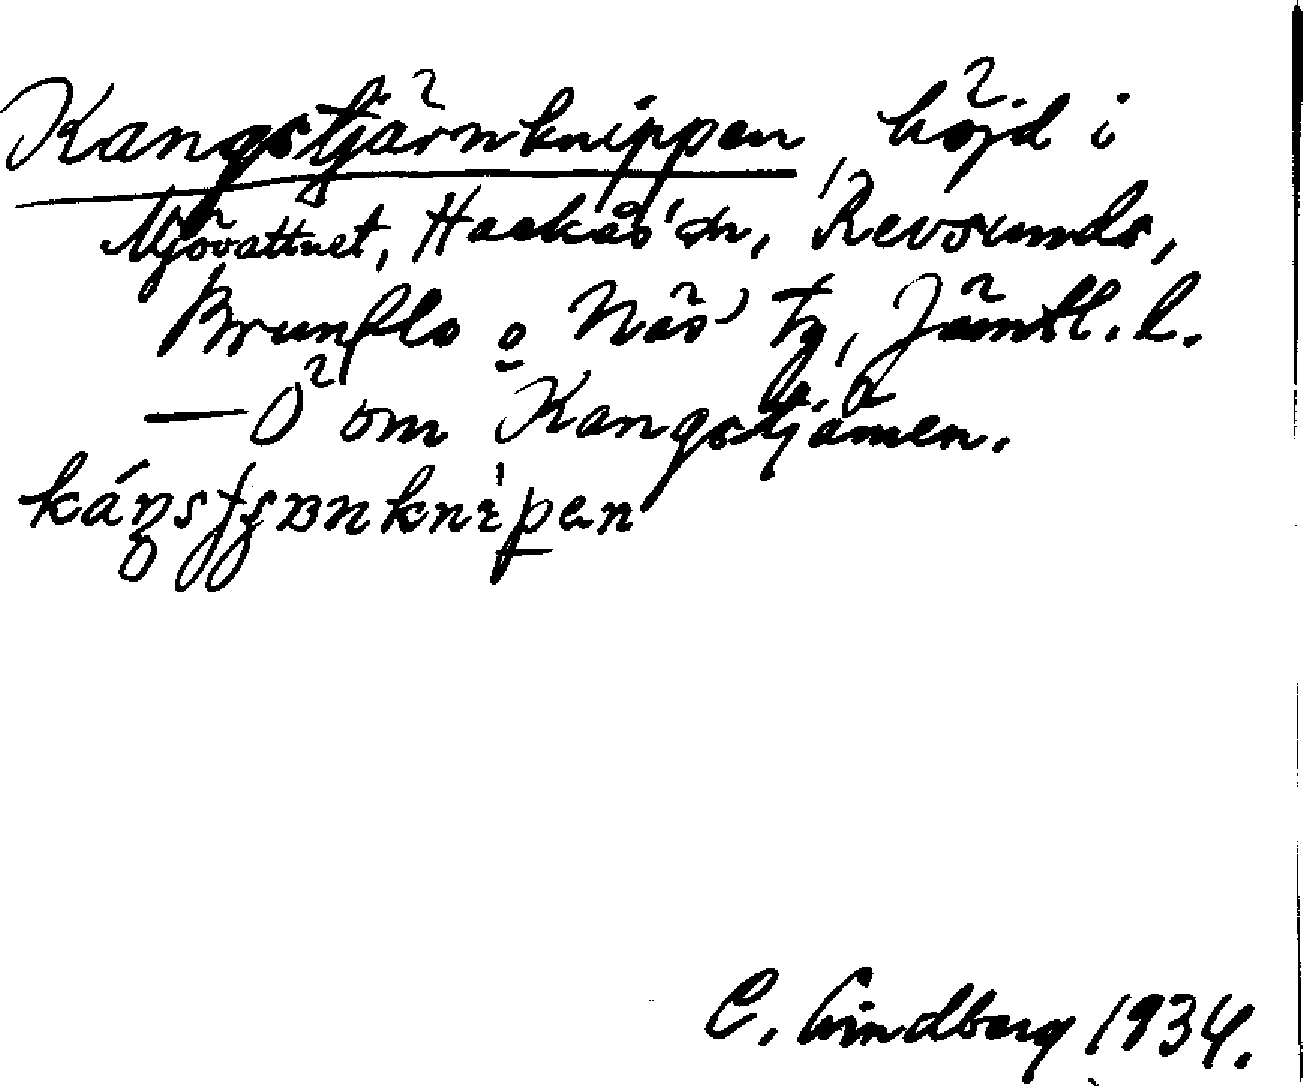 Kangstjärnknippen, höjd i
Mjövattnet, Hackås sn, Revsunds,
Brunflo o Näs tg, Jämtl. l.
— Ö om Kangstjärnen.
C. Lindberg 1934.